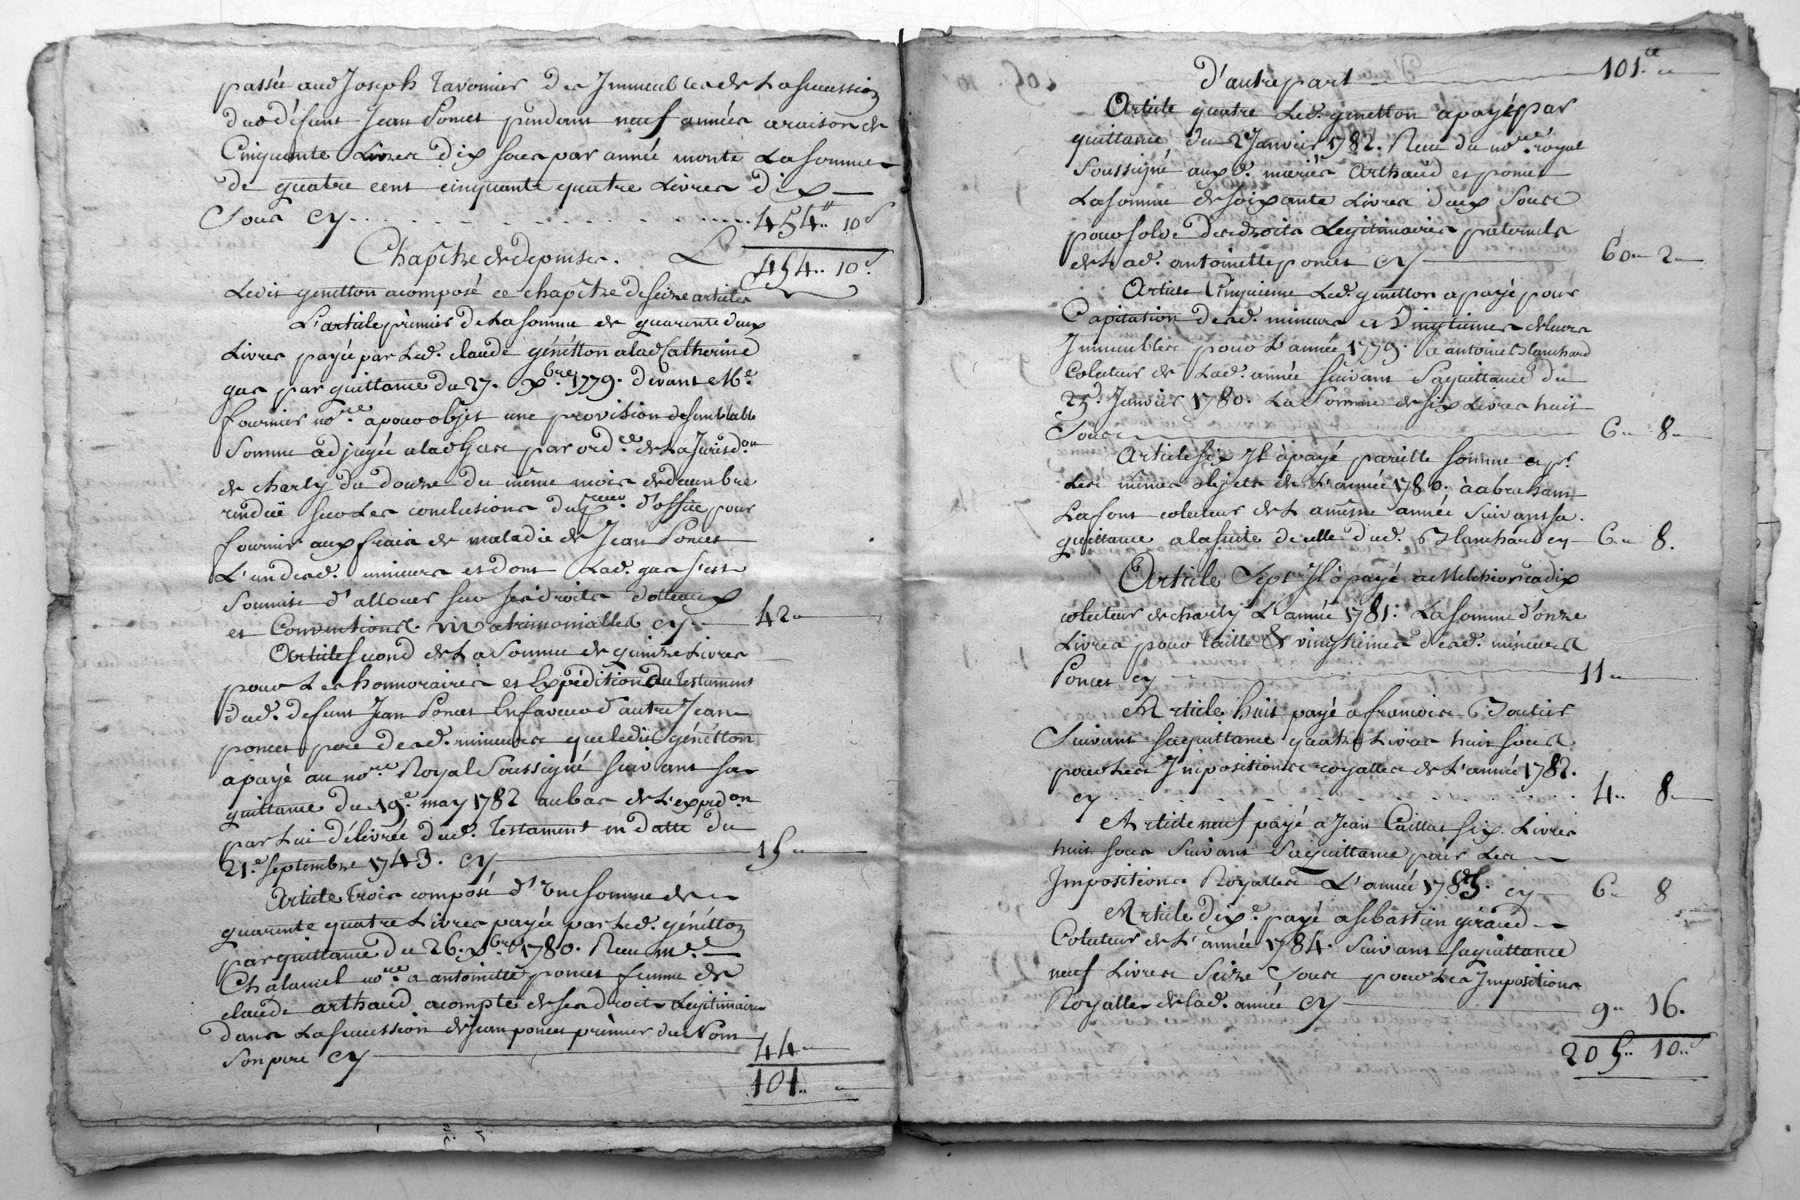 passée aud Joseph Tavernier des Immeubles de La Succession
dud défunt Jean Poncet pendant neuf années araison de
Cinquante Livres dix sous par année monte La Somme
de quatre cent cinquante quatre Livres dix
Sous cy 454 ₶ 10 s
Chapitre de depenses. 454.. 10 s.
Ledit genetton acomposé ce chapitre de seize articles
L'article prémier de La Somme de quarente deux
Livres payée par Led. claude génétton alad Catherine
gas par quittance du 27. xbre. 1779. devant Me.
fournier nore. apour objet une provision de semblable
Somme adjugée alad gas par ordce. de La Juris don
de charly du douze du même mois de decembre
rendüe sur Les conclusions du d'office pour
fournir aux frais de maladie de Jean Poncet
L'un desd. mineurs et dont Lad. gas s'est
Soumise d'allouer sur ses droits dotteaux
et Conventions matrimonialles cy 42..
Article Second de La Somme de quinze Livres
pour Les honnoraires et Expédition du Testament
dud. defunt Jean Poncet En faveur d'autre Jean
poncet pere desd. mineurs que ledit génétton
apayé au nore. Royal Soussigné suivant sa
quittance du 19e. may 1782 au bas de L'expedon
par Lui délivrée dud. Testament en datte du
21e. Septembre 1743. cy 15..
Article trois composé d'une somme de
quarente quatre Livres payée par Led. génétton
par quittance du 26. xbre 1780. Reçu Me.
Chalamel nore. a antoinette poncet femme de
claude arthaud acompte de ses droits Légitimaires
dans La Succession de Jean poncet prémier du Nom
Son pere cy 44..
101..
d'autre part 101 ₶ ..
Article quatre Led. genetton apayé par
quittance du 2 Janvier 1782. Reçu du nore. royal
Soussigné aux d. mariés Arthaud et poncet
La somme de soixante Livres deux Sous
pour solde des droits Legitimaires paternels
de Lad. antoinette poncet cy 60.. 2..
Article Cinquieme Led. genetton apayé pour
Capitation desd. mineurs et Vingtiemes de leurs
Immeubles pour L'année 1779. a antoine Blanchard
Colecteur de Lad. année suivant Saquittance du
25. Janvier 1780. La Somme de six Livres huit
Sous 6.. 8..
Article six Il apayé pareille somme et pr.
Les mêmes objets de L'année 1780. à abraham
Lafont colecteur de La même année suivant sa
quittance ala suite de celle dud. Blanchard cy 6.. 8.
Article Sept Il apayé a Melchior cadix
colecteur de charly L'année 1781. La somme d'onze
Livres pour Taille & vingtiemes desd. mineurs
Poncet cy 11..
Article huit payé a francois Boutier
Suivant saquittance quatre Livres huit sous
pour Les Impositions royalles de L'année 1782.
cy 4.. 8..
Article neuf payé a Jean Caillat six Livres
huit sous suivant Saquittance pour Les
Impositions Royalles L'année 1783. cy 6.. 8
Article dixe. payé a Sebastien giraud
Colecteur de L'année 1784. suivant saquittance
neuf Livres Seize Sous pour Les Impositions
Royalles de lad. année cy 9.. 16.
205.. 10.. s